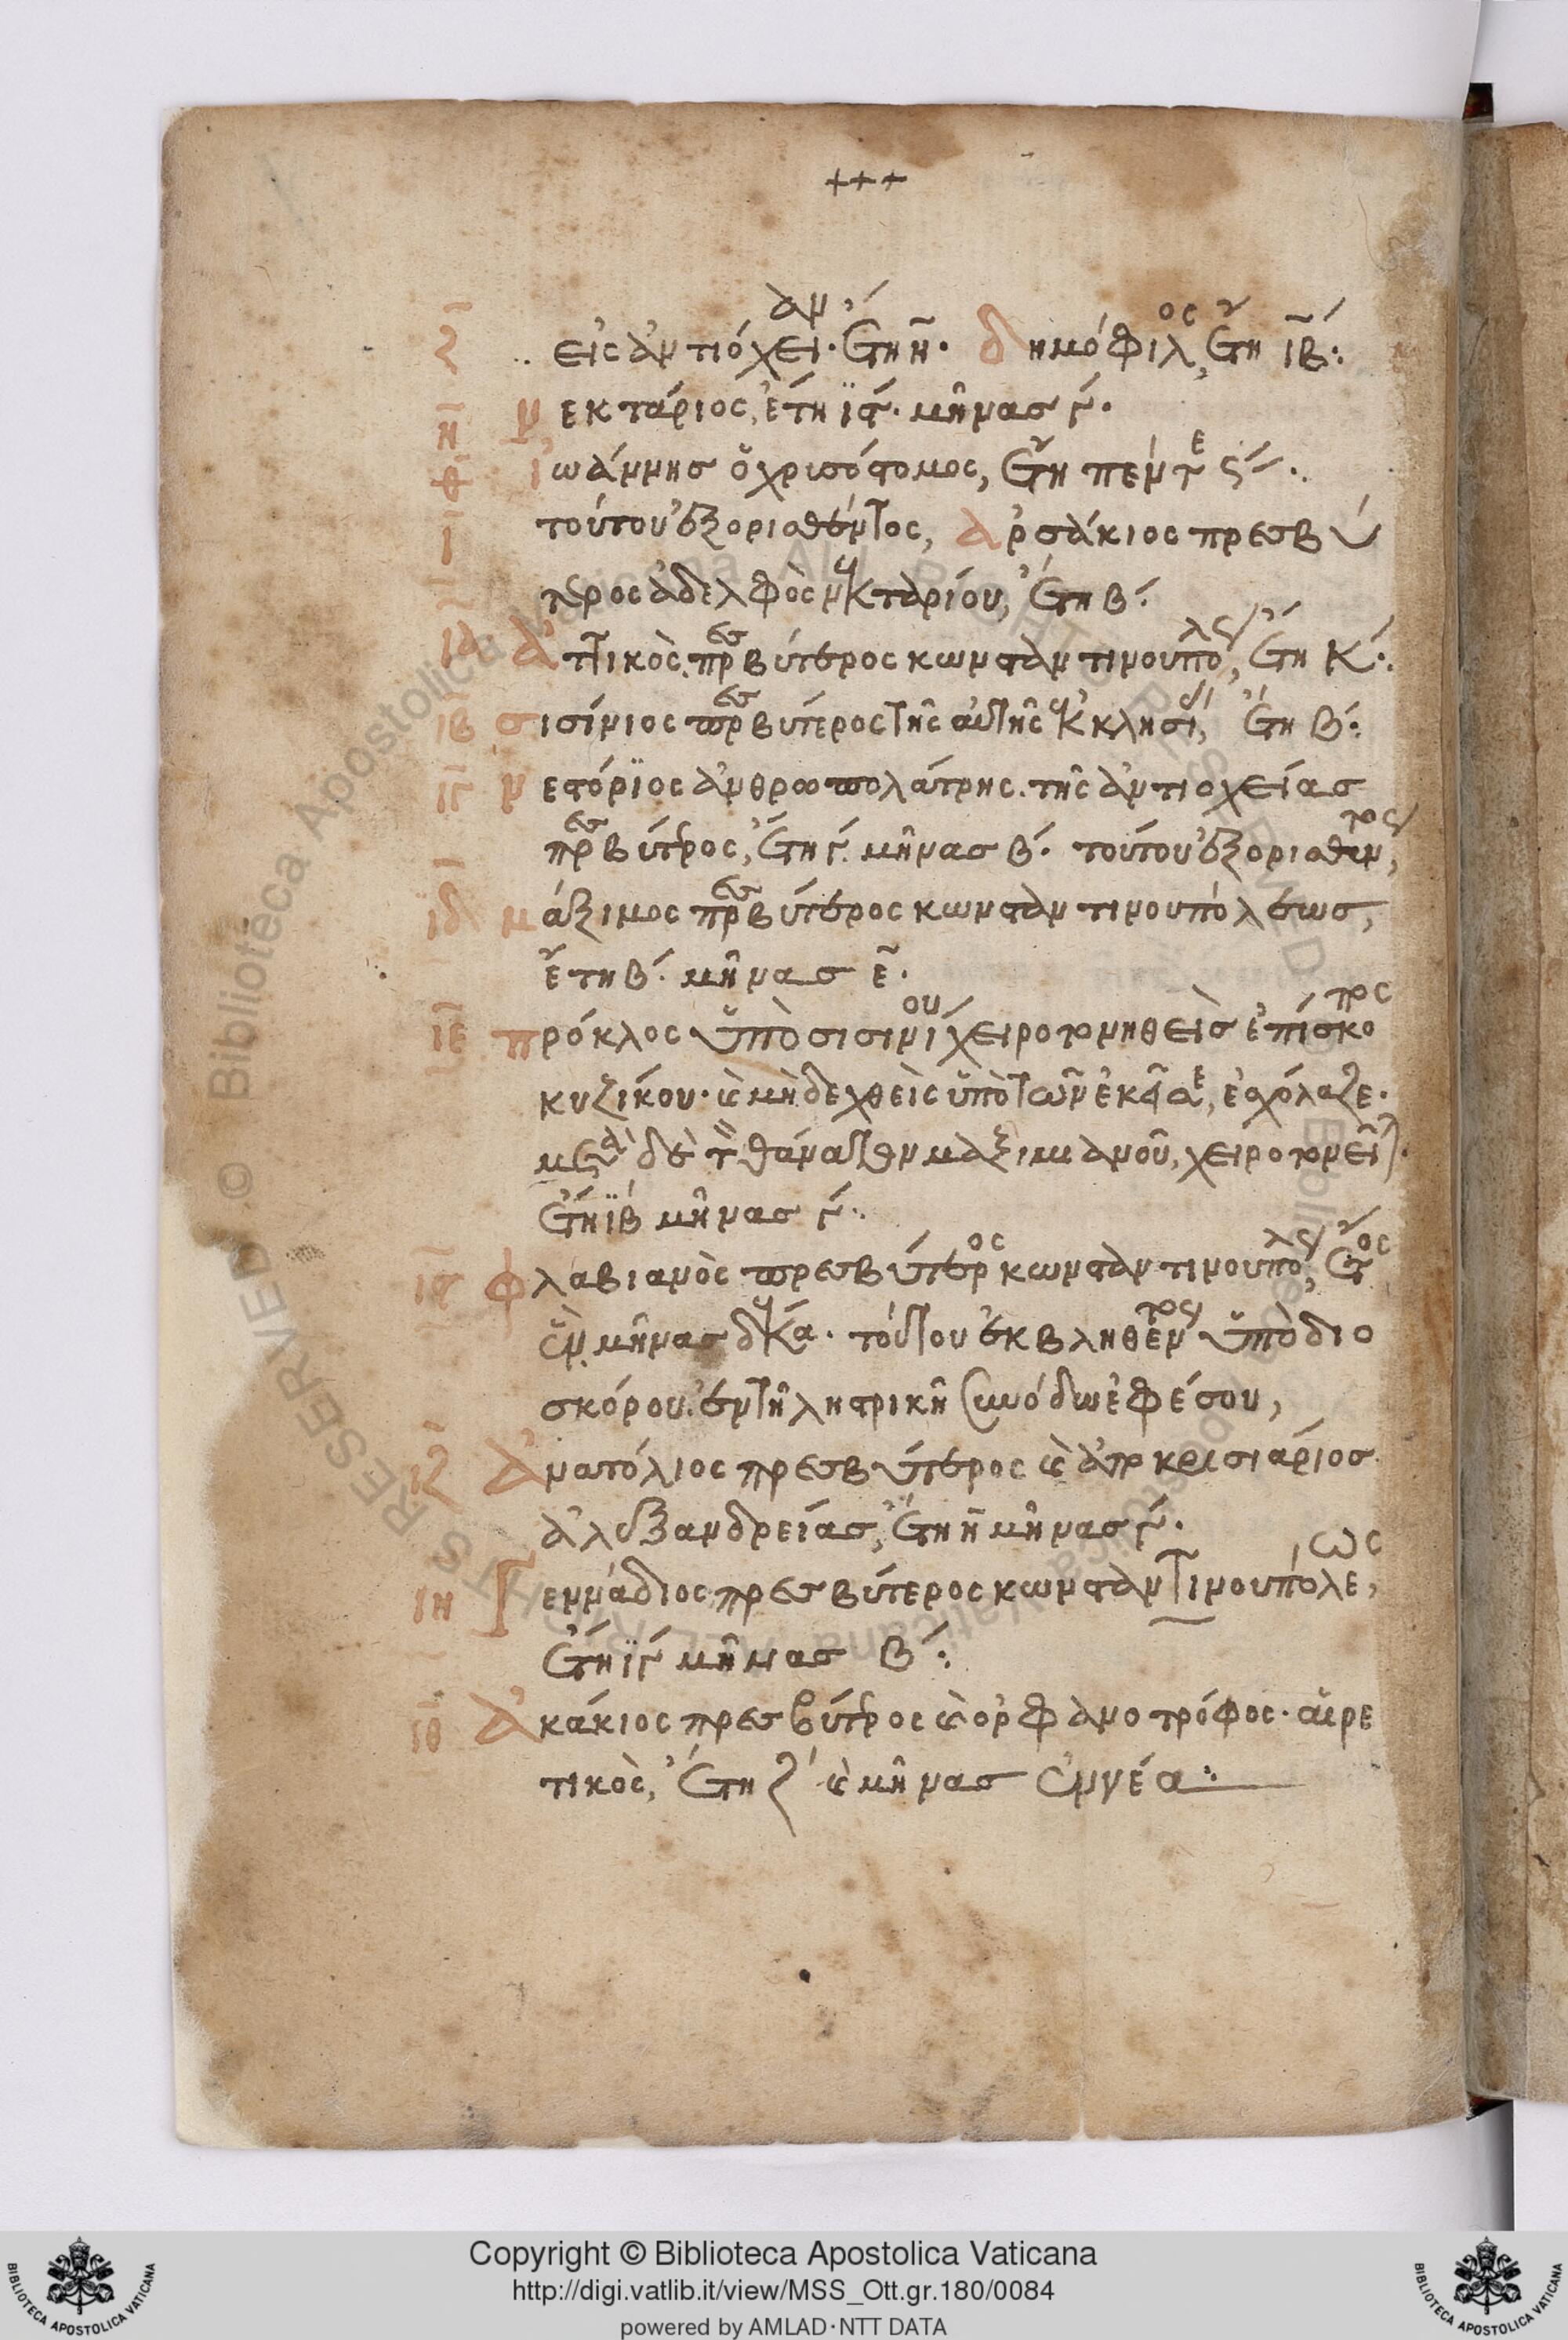 +++
ζ εἰς ἀντιόχειαν· ἔτη η· δημόφιλος, ἔτη ιβ:
η νεκτάριος, ἔτη ϊϛ· μῆνας γ·
θ ἰωάννης ὁ χρισόστομος, ἔτη πέντε ς·
ι τούτου ἐξορισθέντος, ἀρσάκιος πρεσβύ
τερος ἀδελφὸς νεκταρίου, ἔτη β·
ια ἀττικὸς πρεσβύτερος κωνσταντινουπόλς, ἔτη κ:
ιβ σισίνιος πρεσβύτερος τῆς αὐτῆς ἐκκλησι, ἔτη β:
ιγ νεστόριος ἀνθρωπολάτρης. τῆς ἀντιοχείας
πρεσβύτρος, ἔτη γ. μῆνας β· τούτου ἐξορισθέντος,
ιδ μάξιμος πρεσβύτερος κωνσταντινουπόλεως,
ἔτη β· μῆνας ε·
ιε πρόκλος ὑπὸ σισινίου χειροτονηθεὶς ἐπίσκοπος
κυζίκου· καὶ μὴ δεχθεὶς ὑπὸ τῶν ἐκεῖσε, ἐσχόλαζε·
μετὰ δὲ τὸν θάνατον μαξιμιανοῦ, χειροτονεῖται·
ἔτη ιβ μῆνας γ·
ιϛ φλαβιανὸς πρεσβύτερος κωνσταντινουπόλς, ἔτος
ἓν, μῆνας δέκα. τούτου ἐκβληθέντος ὑπὸ διο
σκόρου. ἐν τῆ ληστρικῆ συνόδω ἐφέσου,
ιζ ἀνατόλιος πρεσβύτερος καὶ ἀποκρισιάριος
ἀλεξανδρείας, ἔτη η μῆνας γ·
ιη γεννάδιος πρεσβύτερος κωνσταντινουπόλεως,
ἔτη ιγ μῆνας β:
ιθ ἀκάκιος πρεσβύτρος καὶ ὀρφανοτρόφος· αἱρε
τικὸς, ἔτη ζ καὶ μῆνας ἐννέα:
© Biblioteca Apostolica Vaticana ALL RIGHTS RESERVED
Copyright © Biblioteca Apostolica Vaticana
http://digi.vatlib.it/view/MSS_Ott.gr.180/0084
powered by AMLAD·NTT DATA
BIBLIOTECA APOSTOLICA VATICANA
BIBLIOTECA APOSTOLICA VATICANA